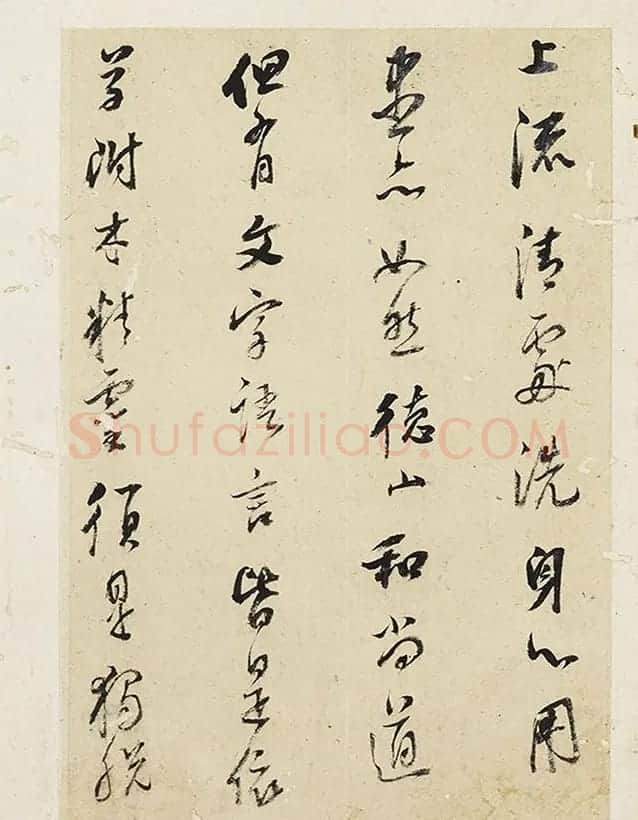 上流清處洗身心用
盡亦如然德山和尚道
但有文字語言皆是依
草附木精靈須是獨脫
Shufaziliao.COM